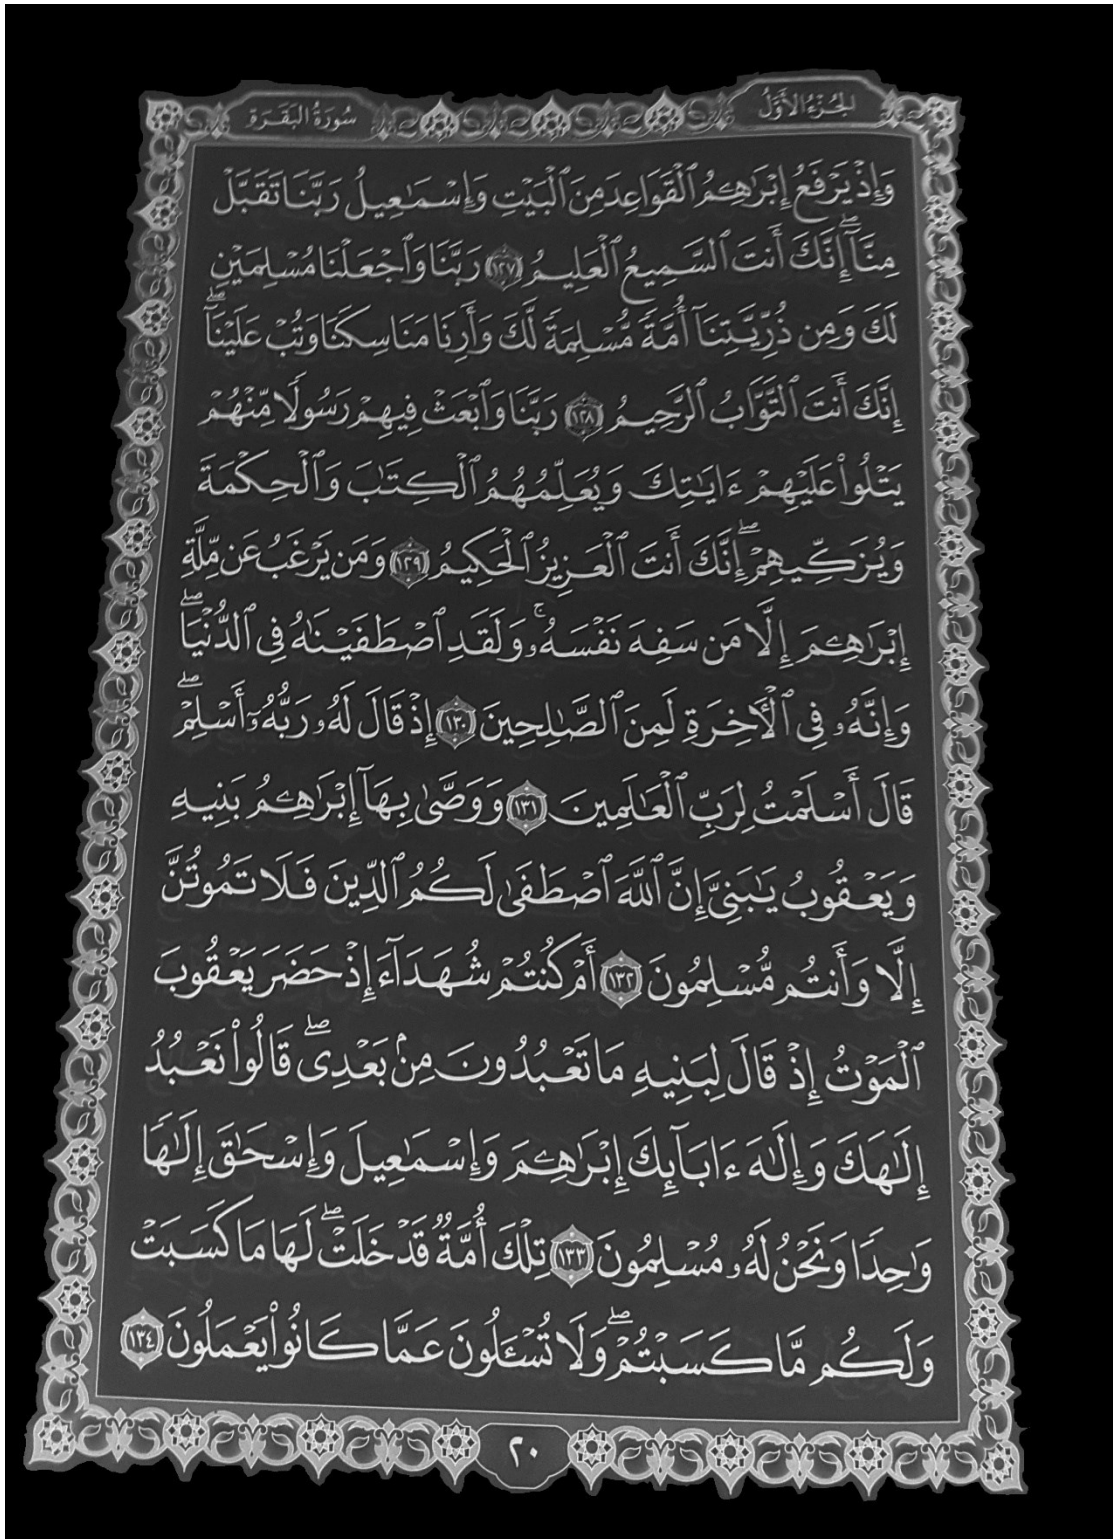 الجُزْءُ الأَوَّلُ
سُورَةُ البَقَرَةِ
وَإِذْ يَرْفَعُ إِبْرَٰهِـۧمُ ٱلْقَوَاعِدَ مِنَ ٱلْبَيْتِ وَإِسْمَٰعِيلُ رَبَّنَا تَقَبَّلْ
مِنَّآ ۖ إِنَّكَ أَنتَ ٱلسَّمِيعُ ٱلْعَلِيمُ ١٢٧ رَبَّنَا وَٱجْعَلْنَا مُسْلِمَيْنِ
لَكَ وَمِن ذُرِّيَّتِنَآ أُمَّةً مُّسْلِمَةً لَّكَ وَأَرِنَا مَنَاسِكَنَا وَتُبْ عَلَيْنَآ ۖ
إِنَّكَ أَنتَ ٱلتَّوَّابُ ٱلرَّحِيمُ ١٢٨ رَبَّنَا وَٱبْعَثْ فِيهِمْ رَسُولًا مِّنْهُمْ
يَتْلُوا۟ عَلَيْهِمْ ءَايَٰتِكَ وَيُعَلِّمُهُمُ ٱلْكِتَٰبَ وَٱلْحِكْمَةَ
وَيُزَكِّيهِمْ ۖ إِنَّكَ أَنتَ ٱلْعَزِيزُ ٱلْحَكِيمُ ١٢٩ وَمَن يَرْغَبُ عَن مِّلَّةِ
إِبْرَٰهِـۧمَ إِلَّا مَن سَفِهَ نَفْسَهُۥ ۚ وَلَقَدِ ٱصْطَفَيْنَٰهُ فِى ٱلدُّنْيَا ۖ
وَإِنَّهُۥ فِى ٱلْءَاخِرَةِ لَمِنَ ٱلصَّٰلِحِينَ ١٣٠ إِذْ قَالَ لَهُۥ رَبُّهُۥٓ أَسْلِمْ ۖ
قَالَ أَسْلَمْتُ لِرَبِّ ٱلْعَٰلَمِينَ ١٣١ وَوَصَّىٰ بِهَآ إِبْرَٰهِـۧمُ بَنِيهِ
وَيَعْقُوبُ يَٰبَنِىَّ إِنَّ ٱللَّهَ ٱصْطَفَىٰ لَكُمُ ٱلدِّينَ فَلَا تَمُوتُنَّ
إِلَّا وَأَنتُم مُّسْلِمُونَ ١٣٢ أَمْ كُنتُمْ شُهَدَآءَ إِذْ حَضَرَ يَعْقُوبَ
ٱلْمَوْتُ إِذْ قَالَ لِبَنِيهِ مَا تَعْبُدُونَ مِنۢ بَعْدِى ۖ قَالُوا۟ نَعْبُدُ
إِلَٰهَكَ وَإِلَٰهَ ءَابَآئِكَ إِبْرَٰهِـۧمَ وَإِسْمَٰعِيلَ وَإِسْحَٰقَ إِلَٰهًا
وَٰحِدًا وَنَحْنُ لَهُۥ مُسْلِمُونَ ١٣٣ تِلْكَ أُمَّةٌ قَدْ خَلَتْ ۖ لَهَا مَا كَسَبَتْ
وَلَكُم مَّا كَسَبْتُمْ ۖ وَلَا تُسْـَٔلُونَ عَمَّا كَانُوا۟ يَعْمَلُونَ ١٣٤
٢٠